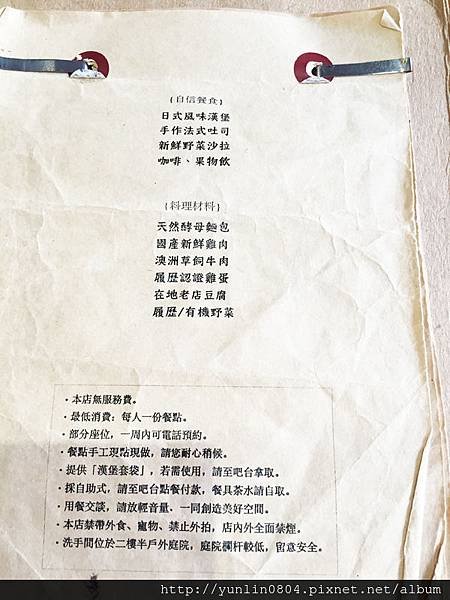 {自信餐食}
日式風味漢堡
手作法式吐司
新鮮野菜沙拉
咖啡、果物飲
{料理材料}
天然酵母麵包
國產新鮮雞肉
澳洲草飼牛肉
履歷認證雞蛋
在地老店豆腐
履歷/有機野菜
・本店無服務費。
・最低消費：每人一份餐點。
・部分座位，一周內可電話預約。
・餐點手工現點現做，請您耐心稍候。
・提供「漢堡套袋」，若需使用，請至吧台拿取。
・採自助式，請至吧台點餐付款，餐具茶水請自取。
・用餐交談，請放輕音量、一同創造美好空間。
・本店禁帶外食、寵物、禁止外拍，店內外全面禁煙。
・洗手間位於二樓半戶外庭院，庭院欄杆較低，留意安全。
http://yunlin0804.pixnet.net/album